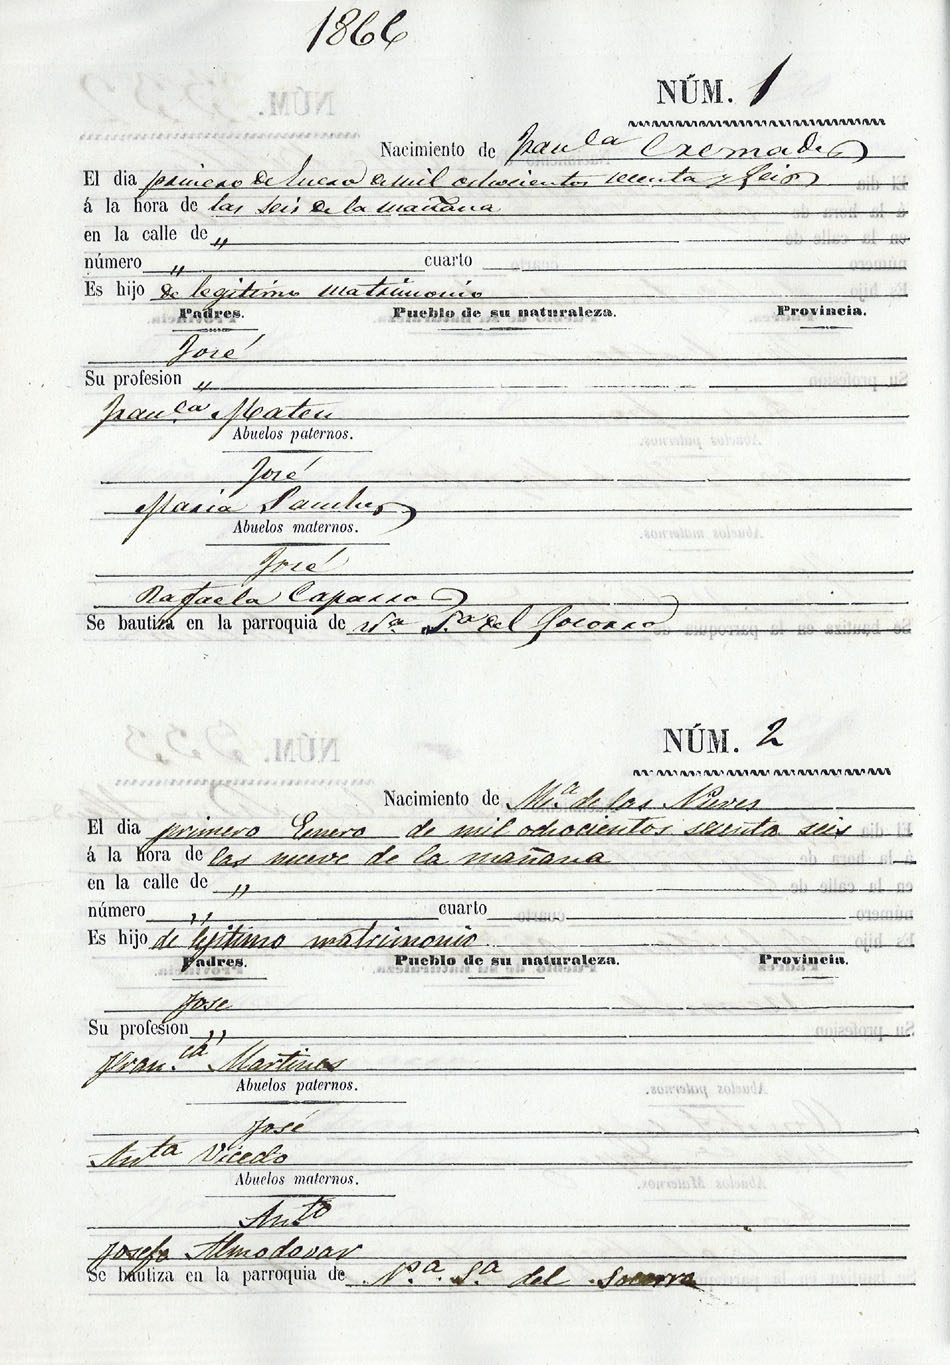 1866
NÚM. 1
Nacimiento de Fran.ca Cremades
El dia primero de Enero de mil ochocientos sesenta y seis
á la hora de las seis de la mañana
en la calle de "
número " cuarto
Es hijo de legitimo matrimonio
Padres. Pueblo de su naturaleza. Provincia.
José
Su profesion "
Fran.ca Mateu
Abuelos paternos.
José
Maria Sanches
Abuelos maternos.
José
Rafaela Caparro
Se bautiza en la parroquia de Nª. Sª. del Socorro
NÚM. 2
Nacimiento de M.ª de las Nieves
El dia primero Enero de mil ochocientos sesenta seis
á la hora de las nueve de la mañana
en la calle de "
número " cuarto
Es hijo de legitimo matrimonio
Padres. Pueblo de su naturaleza. Provincia.
Jose
Su profesion "
Fran.ca Martines
Abuelos paternos.
José
Anta Vicedo
Abuelos maternos.
Anto
Josefa Almodovar
Se bautiza en la parroquia de N.ª S.ª del Socorro